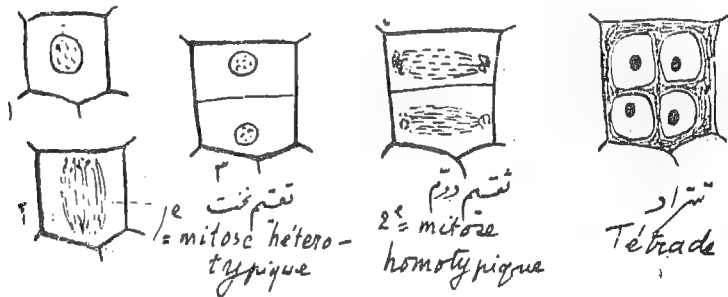 ۱
۲
۳
تقسیم نخست
1e = mitose hétéro-
typique
تقسیم دوّم
2e mitose
homotypique
تتراد
Tétrade